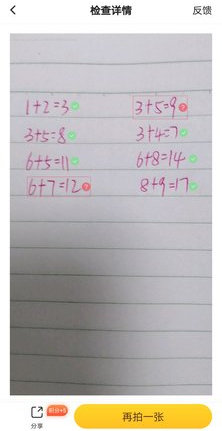 检查详情 反馈
1+2=3 3+5=9
3+5=8 3+4=7
6+5=11 6+8=14
6+7=12 8+9=17
分享 积分+5 再拍一张